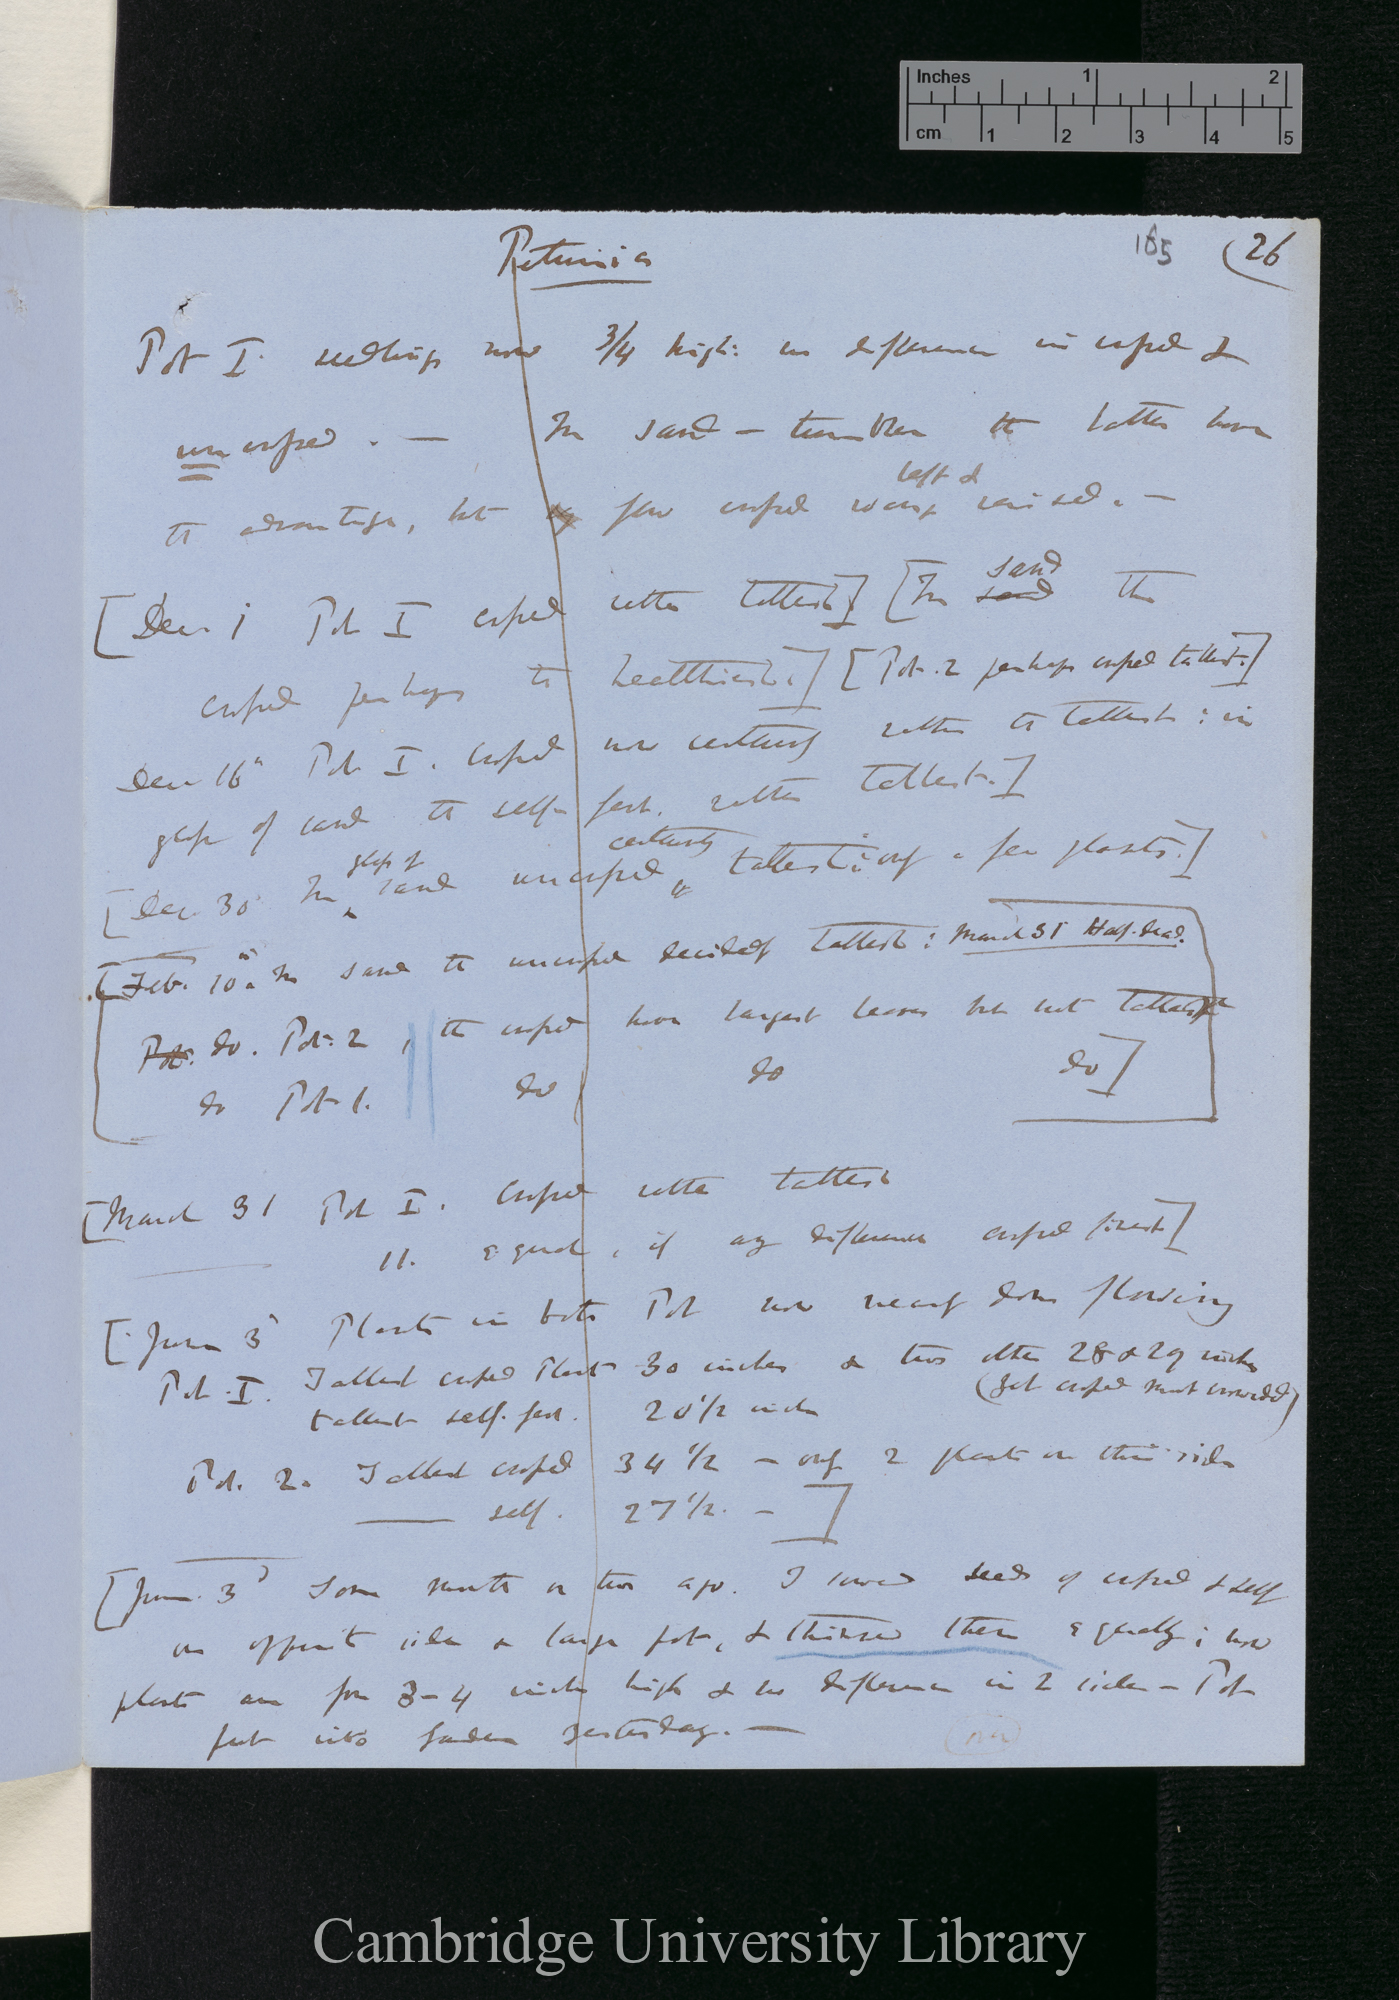 Inches 1 2
cm 1 2 3 4 5
Petunia 165 (26
Pot I. seedlings now 3/4 high: no difference in crossed &
uncrossed. — In sand — tumbler the latter have
the advantage, but few crossed
left &
raised. —
sand
[Dec 1 Pot I crossed rather tallest] [In sand the
crossed perhaps the healthiest.] [Pot. 2 perhaps crossed tallest.]
Dec 16th Pot I. crossed now certainly rather the tallest: in
glass of sand the self-fert. rather tallest.]
glass of certainly
[Dec. 30 In sand uncrossed, tallest: only a few plants.]
[Feb. 10th In sand the uncrossed decidedly tallest: March 31 Half-dead.
Pot. do. Pot. 2, the crossed have largest leaves but not tallest
do Pot 1. do do do]
[March 31 Pot I. Crossed rather tallest
II. equal, if any difference crossed finest]
[June 3d Plants in both Pot now nearly done flowering
Pot. I. Tallest crossed Plant 30 inches & two other 28 & 29 inches
(but crossed most crowded)
tallest self-fert. 20 1/2 inches
Pot. 2. Tallest crossed 34 1/2 — only 2 plants on this side
—— self. 27 1/2. — ]
[June. 3d Some month or two ago. I sowed seeds of crossed & self
on opposite sides a large pot, & thinned them equally; now
plants are from 3-4 inches high & no difference in 2 sides — Pot
put into Garden yesterday. —
Cambridge University Library